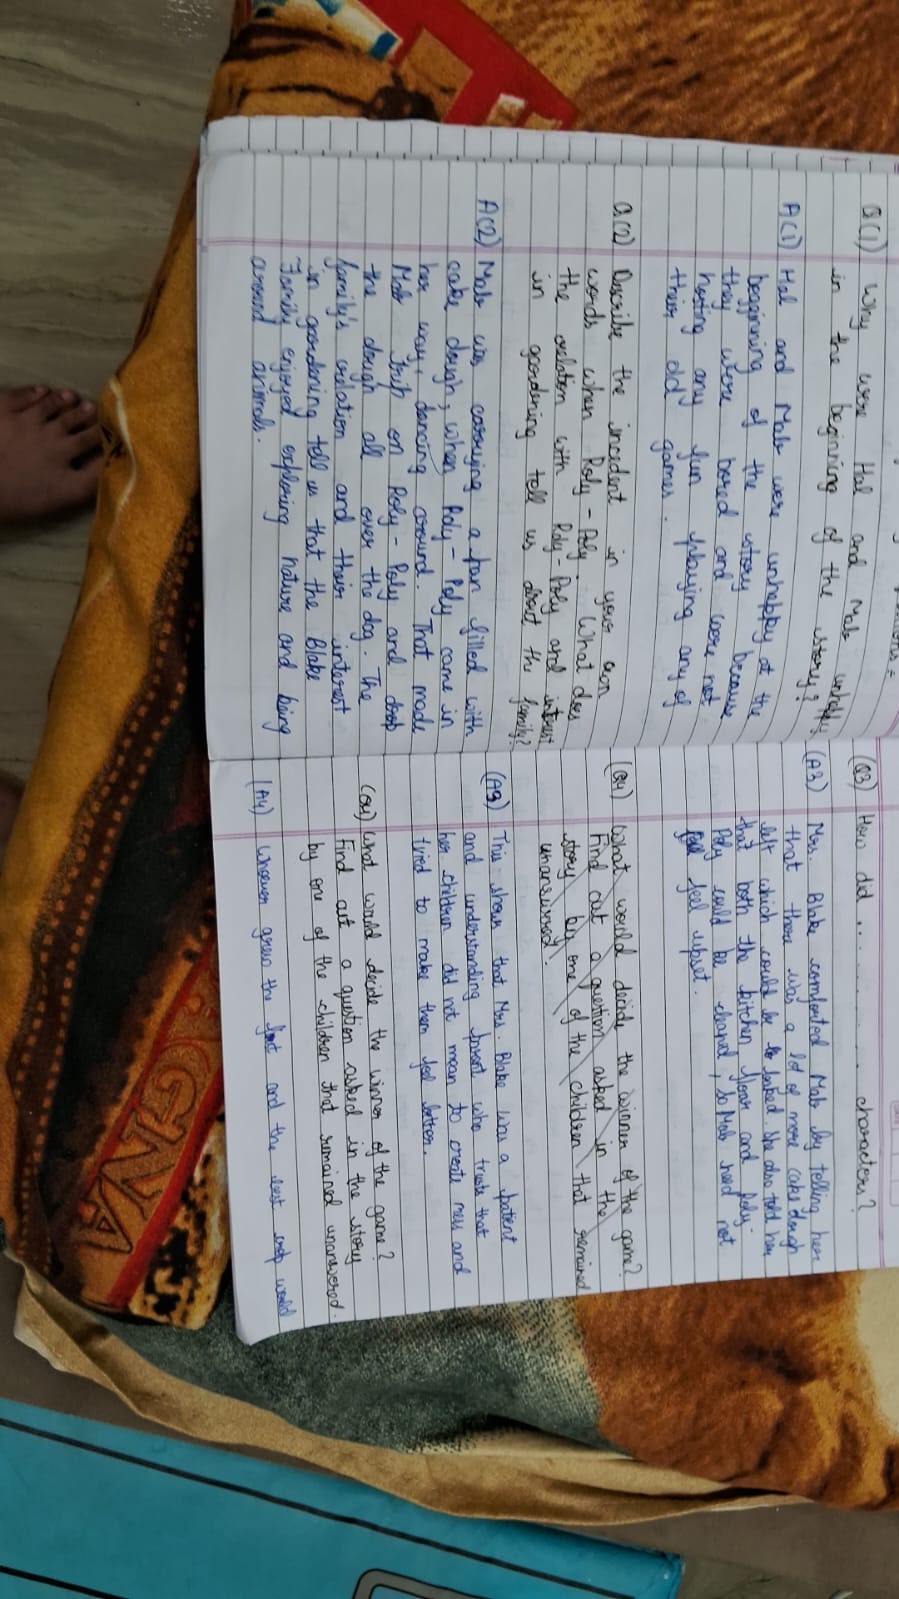 Q(1) Why were Hal and Mab unhappy
in the beginning of the story?
A(1) Hal and Mab were unhappy at the
begginning of the story because
they were bored and were not
hasting any fun playing any of
their old games.
Q(2) Describe the incident in your own
words when Roly-Poly. What does
the relation with Roly-Poly and interest
in gardening tell us about the family?
A(2) Mab was carrying a pan filled with
cake dough, when Roly-Poly came in
her way, dancing around. That made
Mab trip on Roly-Poly and drop
the dough all over the dog. The
family's relation and their interest
in gardening tell us that the Blake
Family enjoyed exploring nature and being
around animals.
(Q3) How did ............ characters?
(A3) Mrs. Blake comforted Mab by telling her
that there was a lot of more cake dough
left which could be baked. She also told her
that both the kitchen floor and Roly-
Poly could be cleaned, so Mab need not
feel upset.
(Q4) What would decide the winner of the game?
Find out a question asked in the
story by one of the children that remained
unanswered.
(A3) This shows that Mrs. Blake was a patient
and understanding parent who trusts that
her children did not mean to create mess and
tried to make them feel better.
(Q4) What would decide the winner of the game?
Find out a question asked in the story
by one of the children that remained unanswered.
(A4) Whoever grew the and the best crop would
AGNA